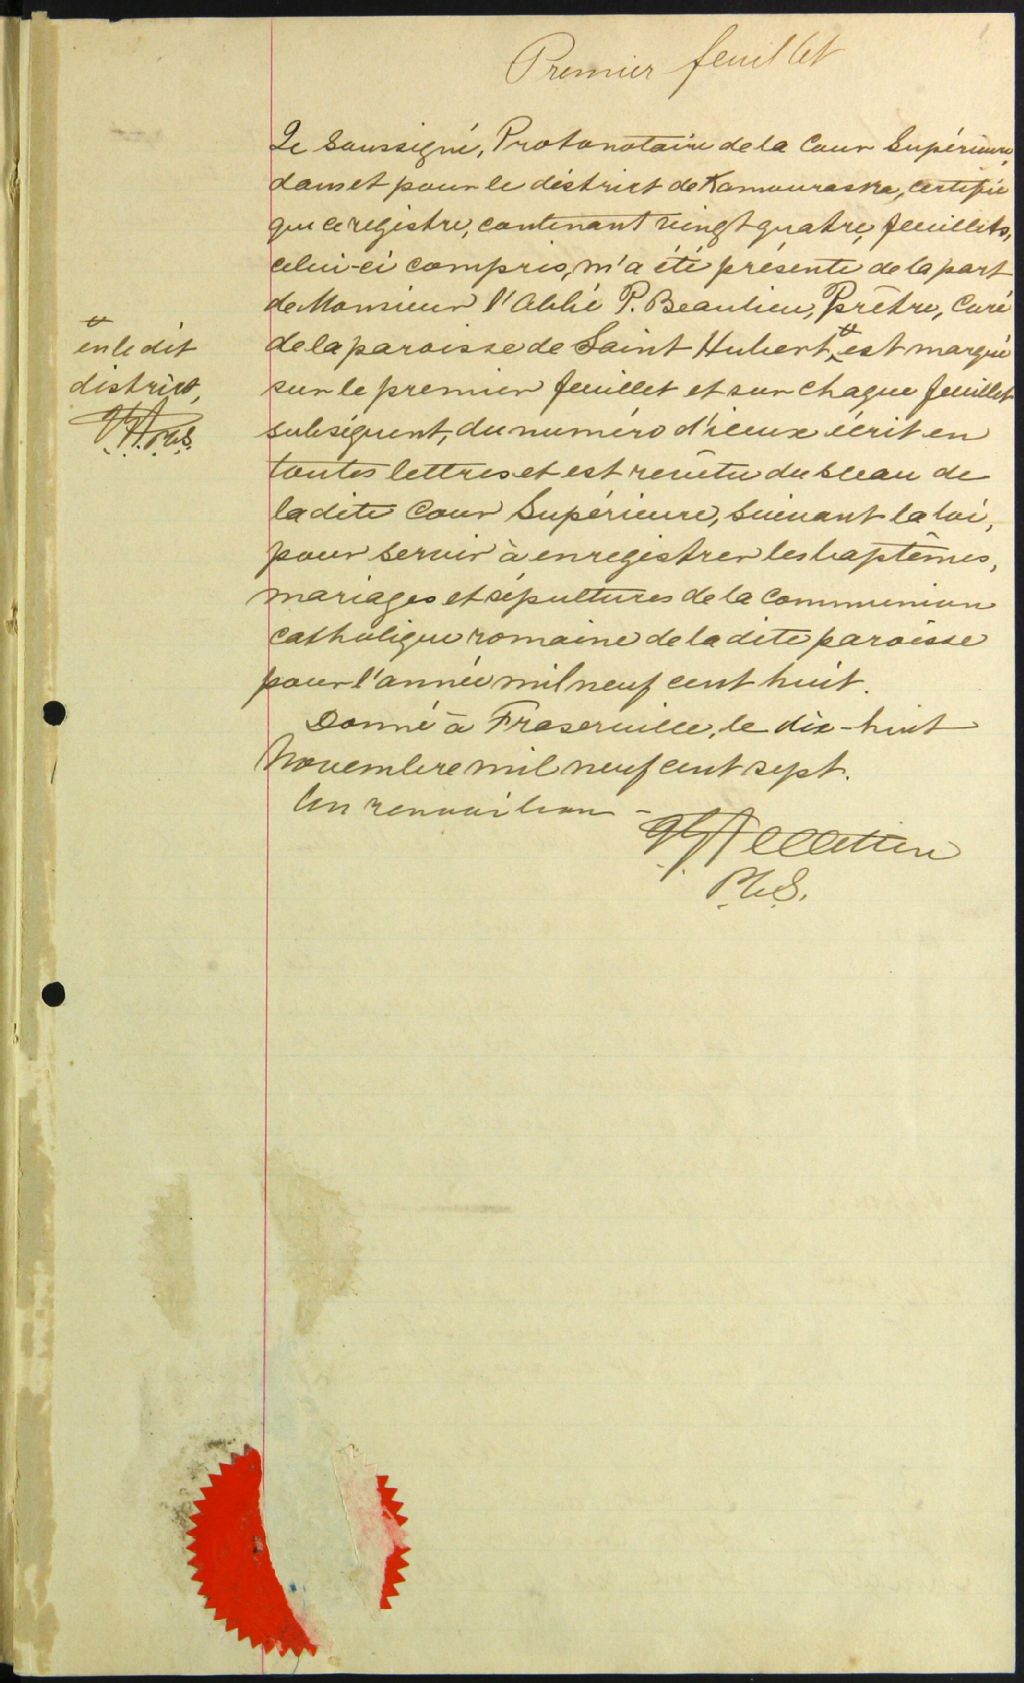 Premier feuillet
Le Soussigné, Protonotaire de la Cour Supérieure,
dans et pour le district de Kamouraska, certifie
que ce registre, contenant vingt quatre, feuillets,
celui-ci compris, m'a été présenté de la part
de Monsieur l'Abbé P. Beaulieu, Prêtre, Curé
de la paroisse de Saint Hubert, # est marqué
sur le premier feuillet et sur chaque feuillet
subséquent, du numéro d'iceux écrit en
toutes lettres et est revêtu du sceau de
la dite Cour Supérieure, suivant la loi,
pour servir à enregistrer les baptêmes,
mariages et sépultures de la communion
catholique romaine de la dite paroisse
pour l'année mil neuf cent huit.
Donné à Fraserville, le dix-huit
Novembre mil neuf cent sept.
Un renvoi bon -
Pelletier
P.C.S.
#
en le dit
district,
P.C.S.